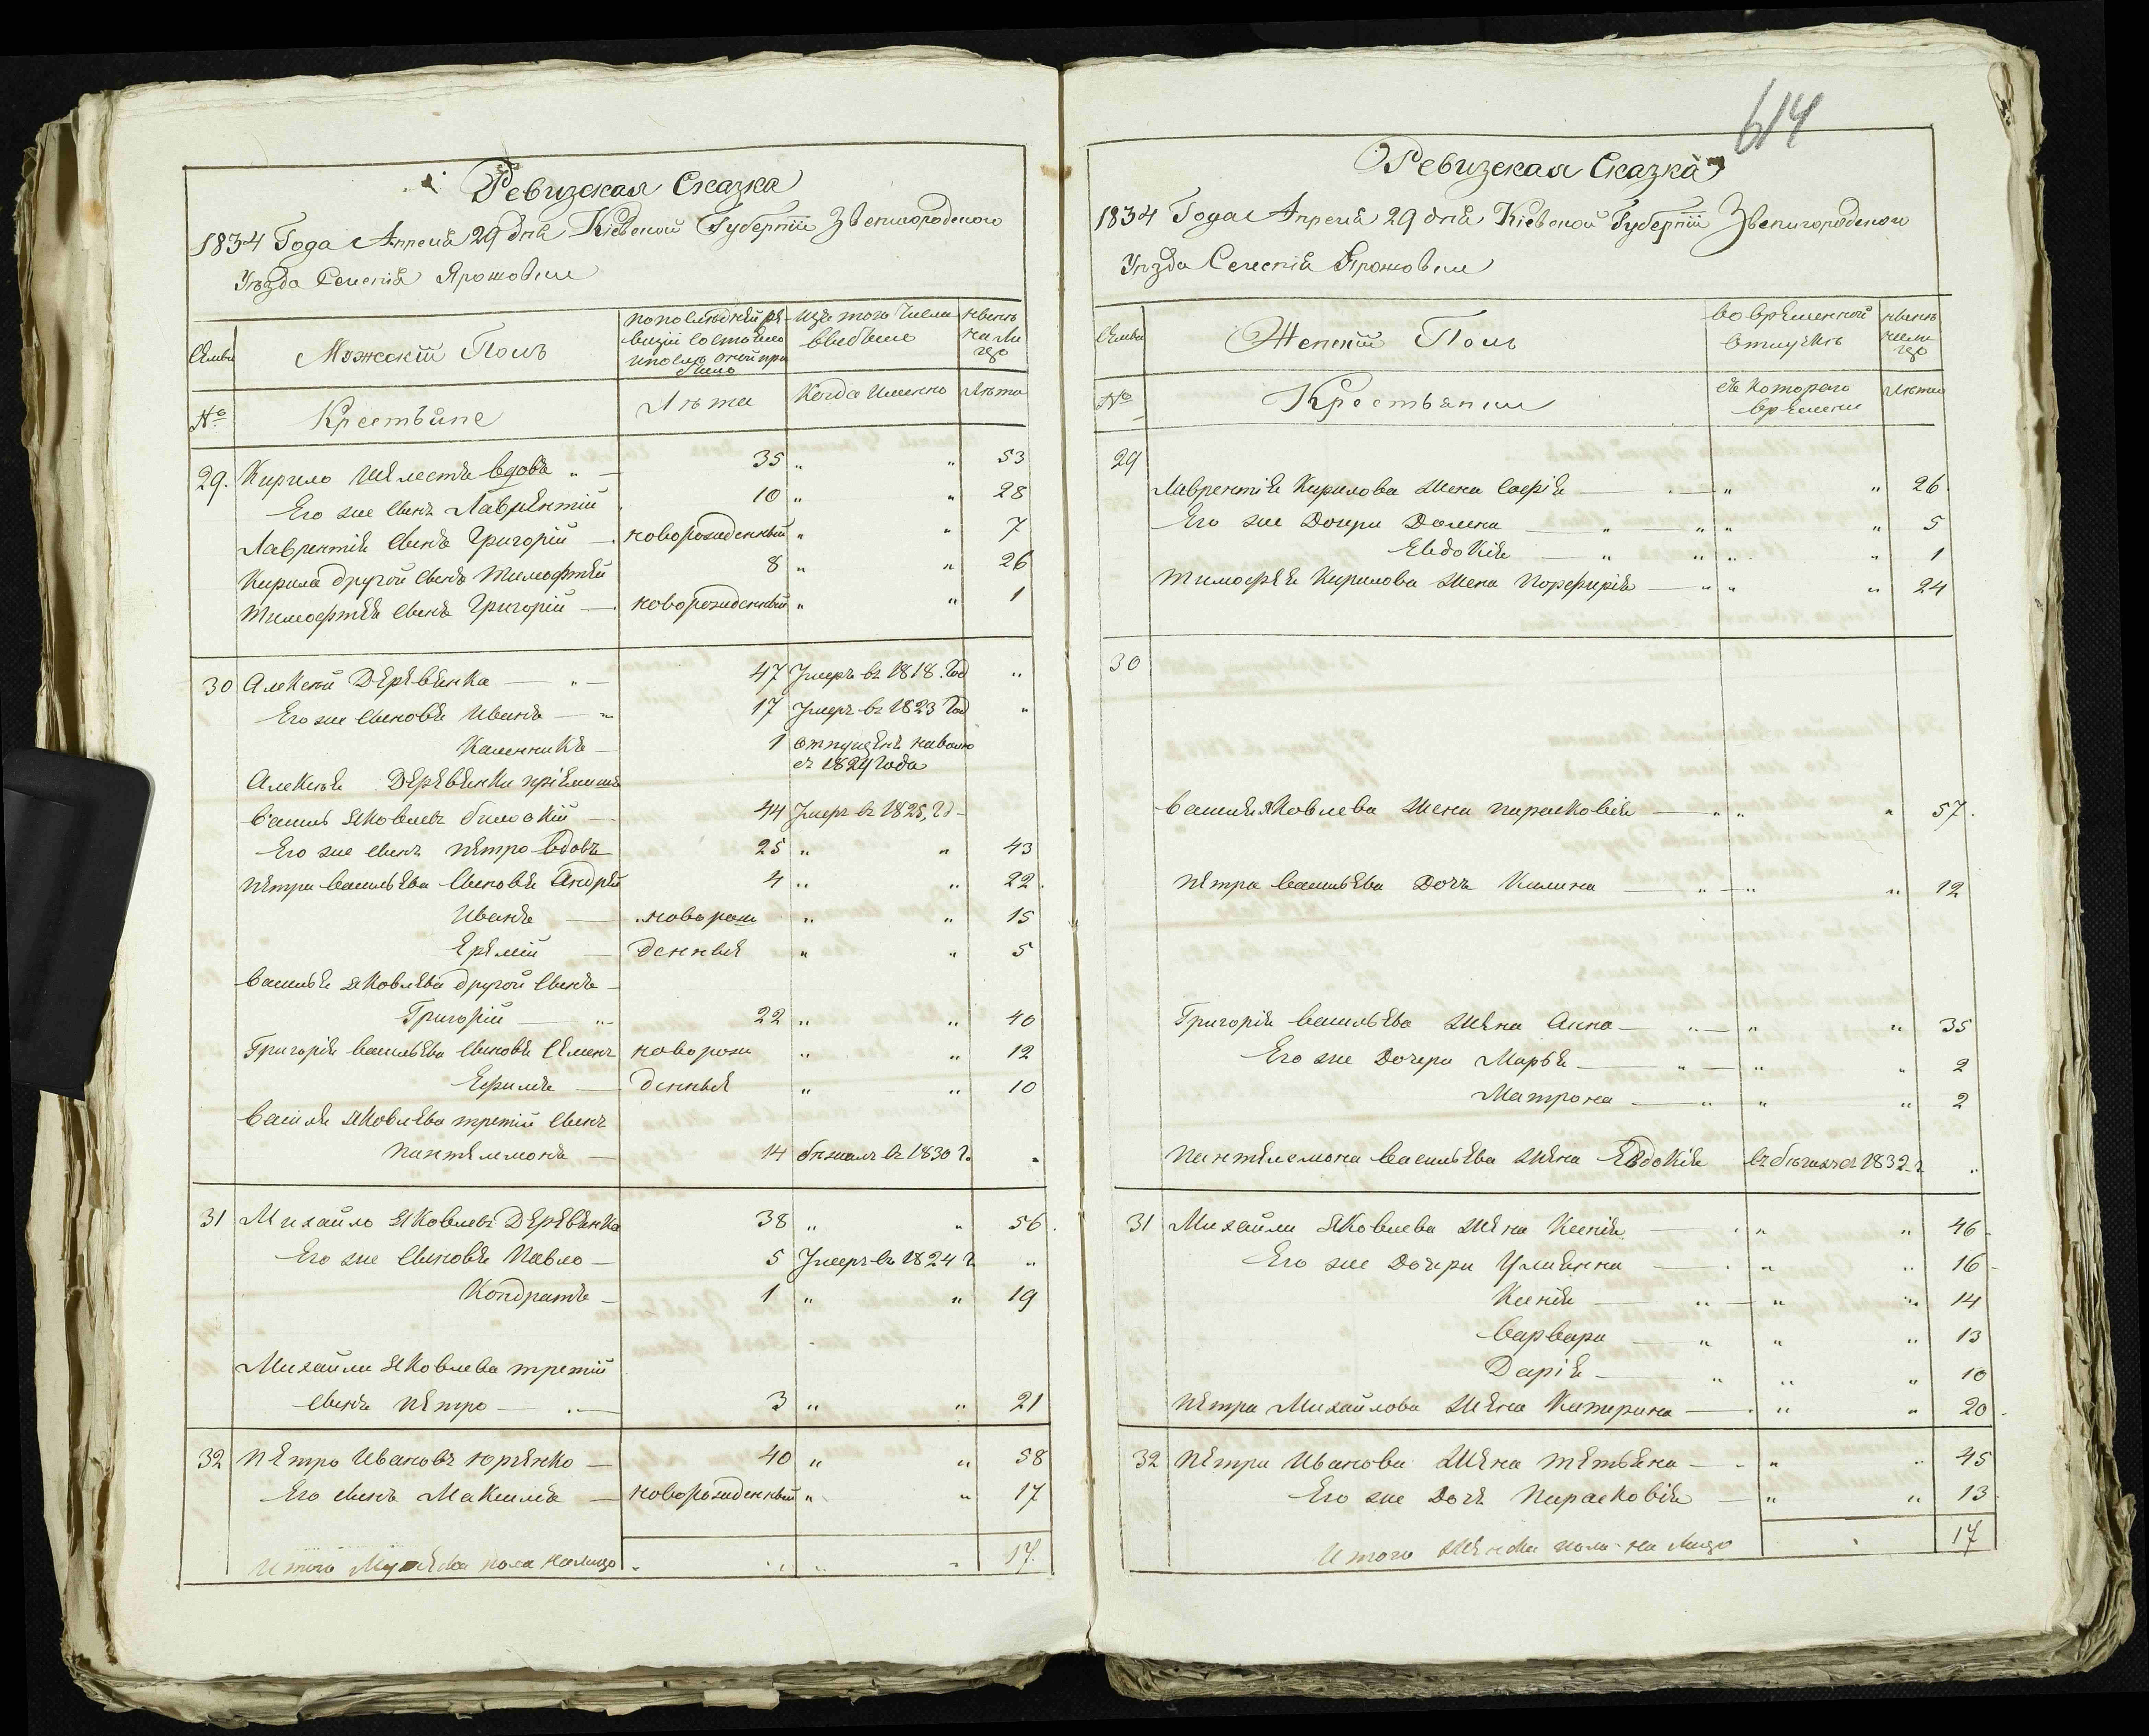 614
Ревизская Сказка
1834 Года Апреля 29 дня Кіевской Губерніи Звенигородского
Уезда Селенія Ярошовки
Семьи
Мужескій Полъ
по последней ре-
визіи состояло
и после оной при
было
изъ того числа
выбыло
ныне
на ли
цо
№
Крестьяне
Лета
Когда именно
Лета
29. Кирило Шелестъ вдовъ 35 „ „ 53
Его же сынъ Лаврентій 10 „ „ 28
Лаврентія сынъ Григорій новорожденный „ „ 7
Кирила другой сынъ Тимофтей 8 „ „ 26
Тимофтея сынъ Григорій новорожденный „ „ 1
30 Алексей Деревянка 47 Умеръ въ 1818. год „
Его же сыновья Иванъ 17 Умеръ въ 1823 год „
Калениикъ 1 отпущенъ на волю
съ 1829 года
Алексея Деревянки пріемышъ
Василь Яковлевъ 44 Умеръ въ 1825, г.
Его же сынъ Петро вдовъ 25 „ „ 43
Петра Васильева сыновья Андрей 4 „ „ 22.
Иванъ новорож „ „ 15
Еремій денные „ „ 5
Василья Яковлева другой сынъ
Григорій 22 „ „ 40
Григорія Васильева сыновья Семенъ новорож „ „ 12
Ефимъ денные „ „ 10
Василя Яковлева третій сынъ
Пантелемонъ 14 бежалъ въ 1830 г. „
31 Михайло Яковлевъ Деревянка 38 „ „ 56.
Его же сыновья Павло 5 Умеръ въ 1824 г. „
Кондратъ 1 „ „ 19
Михайла Яковлева третій
сынъ Петро 3 „ „ 21
32 Петро Ивановъ Юрченко 40 „ „ 58
Его сынъ Максимъ новорожденный „ „ 17
Итого Мужеска пола налицо 17.
Ревизская Сказка
1834 Года Апреля 29 дня Кіевской Губерніи Звенигородского
Уезда Селенія Ярошовки
Семьи
Женскій Полъ
во временной
отлучке
ныне
нали
цо
№
Крестьянки
съ которого
времени
Лета
29
Лаврентія Кирилова жена Софія „ „ 26.
Его же дочери Домена „ „ 5
Евдокія „ „ 1
Тимофея Кирилова жена Порфирія „ „ 24
30
Василя Яковлева жена Парасковія „ „ 57.
Петра Васильева дочь Килина „ „ 12
Григорія Васильева жена Анна „ „ 35
Его же дочери Марья „ „ 2
Матрона „ „ 2
Пантелемона Васильева жена Евдокія въ бегахъ съ 1832 г. „
31 Михайла Яковлева жена Ксенія „ „ 46
Его же дочери Ульянна „ „ 16
Ксенія „ „ 14
Варвара „ „ 13
Дарія „ „ 10
Петра Михайлова жена Катерина „ „ 20.
32 Петра Иванова жена Тетьяна „ „ 45
Его же дочь Парасковія „ „ 13
Итого женска пола на лицо 17